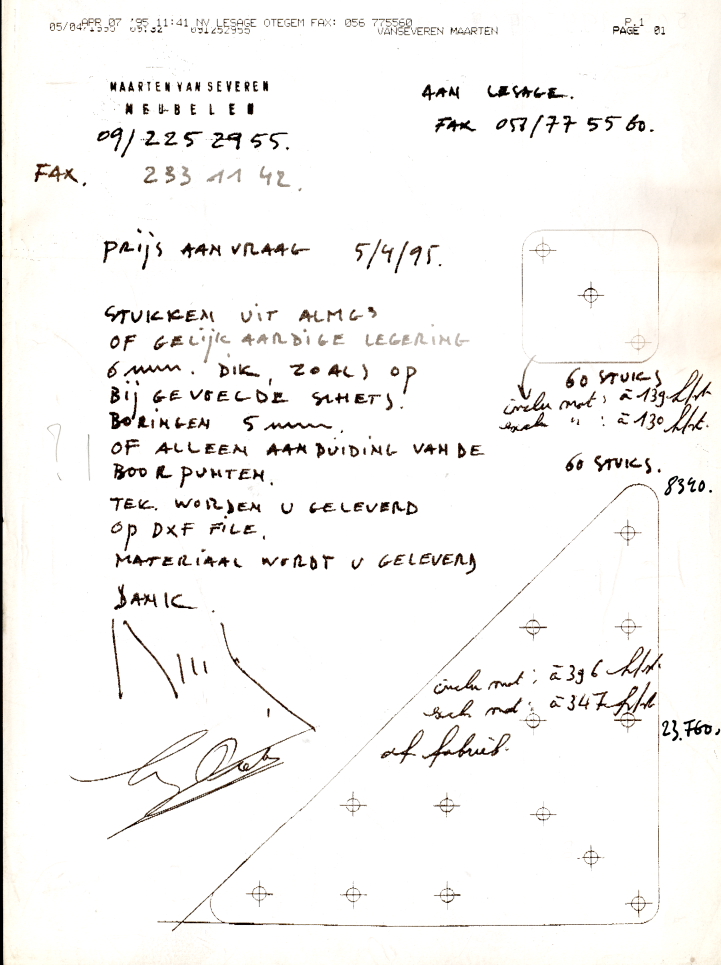 APR 07 '95 11:41 NV LESAGE OTEGEM FAX: 056 775560 P.1
05/04/1995 09:52 091252955 VANSEVEREN MAARTEN PAGE 01
MAARTEN VAN SEVEREN
MEUBELEN
09/225 29 55.
FAX. 233 11 42.
AAN LESAGE.
FAX 056/77 55 60.
PRIJS AANVRAAG 5/4/95.
STUKKEN UIT ALMG3
OF GELIJKAARDIGE LEGERING
6 mm. DIK, ZOALS OP
BIJGEVOEGDE SCHETS.
BORINGEN 5 mm.
OF ALLEEN AANDUIDING VAN DE
BOORPUNTEN.
TEK. WORDEN U GELEVERD
OP DXF FILE.
MATERIAAL WORDT U GELEVERD
DANK.
60 STUKS
inclu mat: à 139.-fr/st.
exclu " : à 130 fr/st.
60 STUKS.
8340.
inclu mat: à 396 fr/st.
excl mat: à 347 fr/st
af fabriek.
23.760,